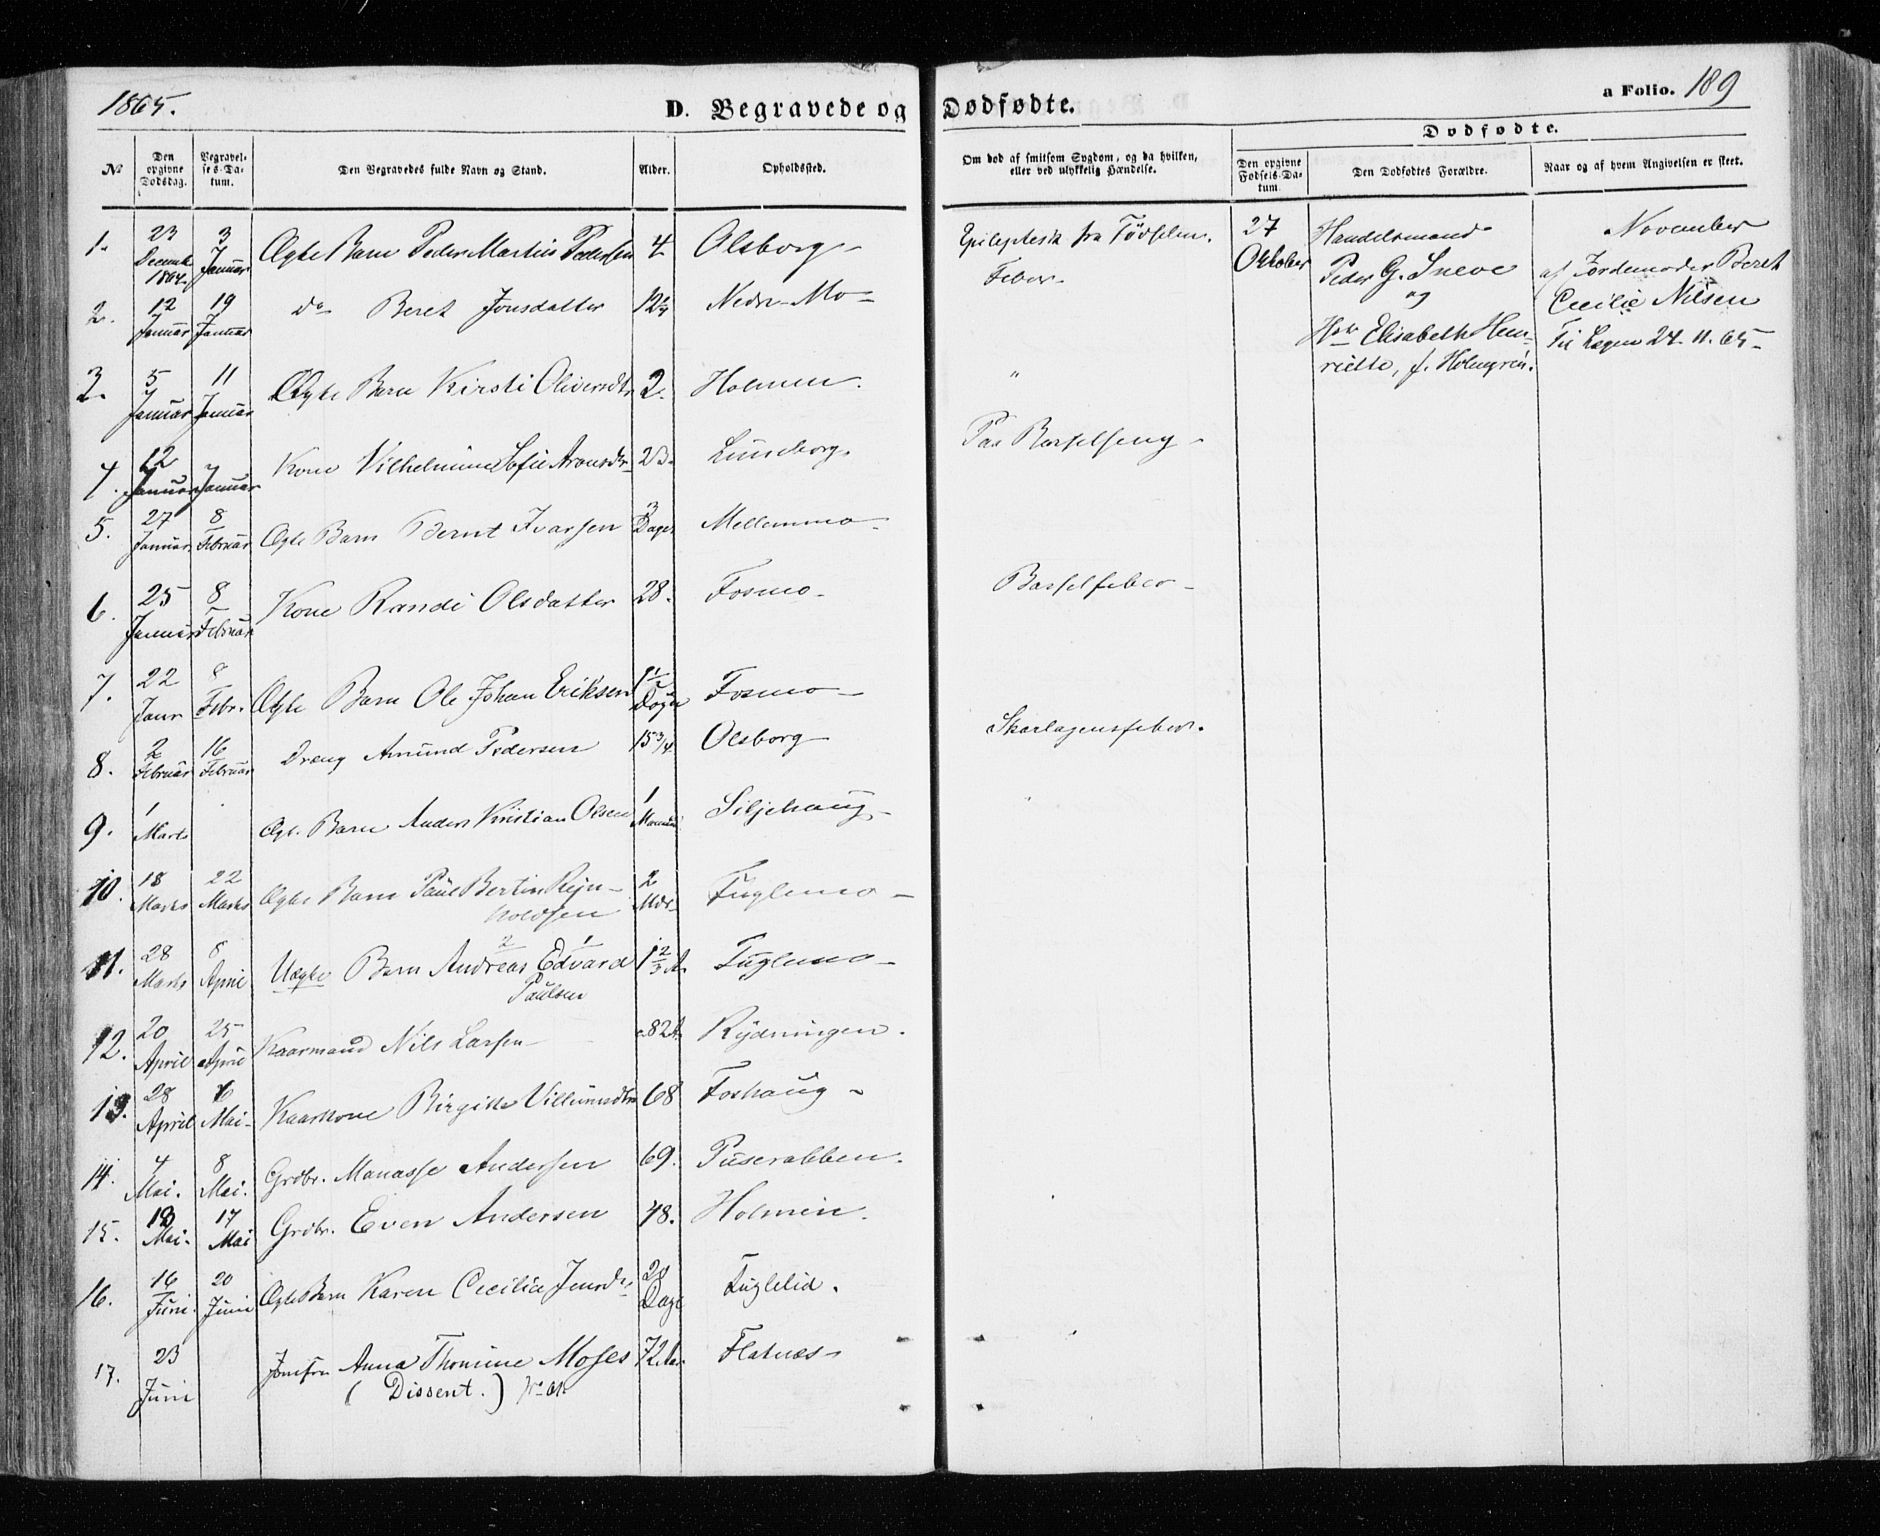 1865.
D. Begravede og Dødfødte.
a Folio. 189
Dødfødte.
No
Den opgivne Dødsdag.
Begravelses-Datum.
Den Begravedes fulde Navn og Stand.
Alder.
Opholdssted.
Om død af smitsom Sygdom, og da hvilken, eller ved ulykkelig Hændelse.
Den opgivne Fødsels-Datum
Den Dødfødtes Forældre.
Naar og af hvem Angivelsen er skeet.
1. 23 Decemb. 1864. 3 Januar Ægte Barn Peder Martin Pedersen 4 Olsborg Epileptesik fra Fødselen.
2. 12 Januar 19 Januar do Beret Jonsdatter 12 1/4 Nedre-Mo Feber
3. 5 Januar 11 Januar Ægte Barn Kirsti Oliversdtr 2. Holmen. "
4. 12 Januar Januar Kone Vilhelmine Sofie Aronsdtr 23. Lundborg. Paa Barselseng
5. 27 Januar 8 Februar Ægte Barn Bernt Ivarsen 3 Dage Mellemmo
6. 25 Januar 8 Februar Kone Randi Olsdatter 28. Fosmo Barselfeber
7. 22 Janr 8 Febr. Ægte Barn Ole Johan Eriksen 1 1/2 Døgn Fosmo
8. 2 Februar 16 Februar Dreng Amund Pedersen 15 3/4 Olsborg Skarlagensfeber.
9. 1 Marts Ægte Barn Anders Kristian Olsen 1 Maaned Siljehaug
10. 18 Marts 22 Marts Ægte Barn Paul Bertin Reinholdsen 2 Mdr Fuglemo
11. 28 Marts 8 April Uægte Barn Andreas Edvard Paulsen 2 1 1 2/3 A. Fuglemo
12. 20 April 25 April Kaarmand Nils Larsen 82 A. Rydningen.
13. 28 April 6 Mai Kaarkone Birgitte Villumsdtr 68 Foshaug
14. 4 Mai. 8 Mai. Grdbr. Manasse Andersen 69. Puserabben.
15. 13 Mai. 17 Mai Grdbr. Even Andersen 48. Holmen.
16. 16 Juni. 20 Juni Ægte Barn Karen Cecilia Jensdr 20 Dage Fuglelid.
17. 23 Juni Jomfru Anna Thomine Moses (Dissent.) 72 Aar Flatnæs
27 Oktober
Handelsmand
Peder G. Sneve
og
Hstr Elisabeth Hen-
riette, f. Holmgren.
November
af Jordemoder Beret
Cecilie Nilsen
Til Lægen 24-11-65